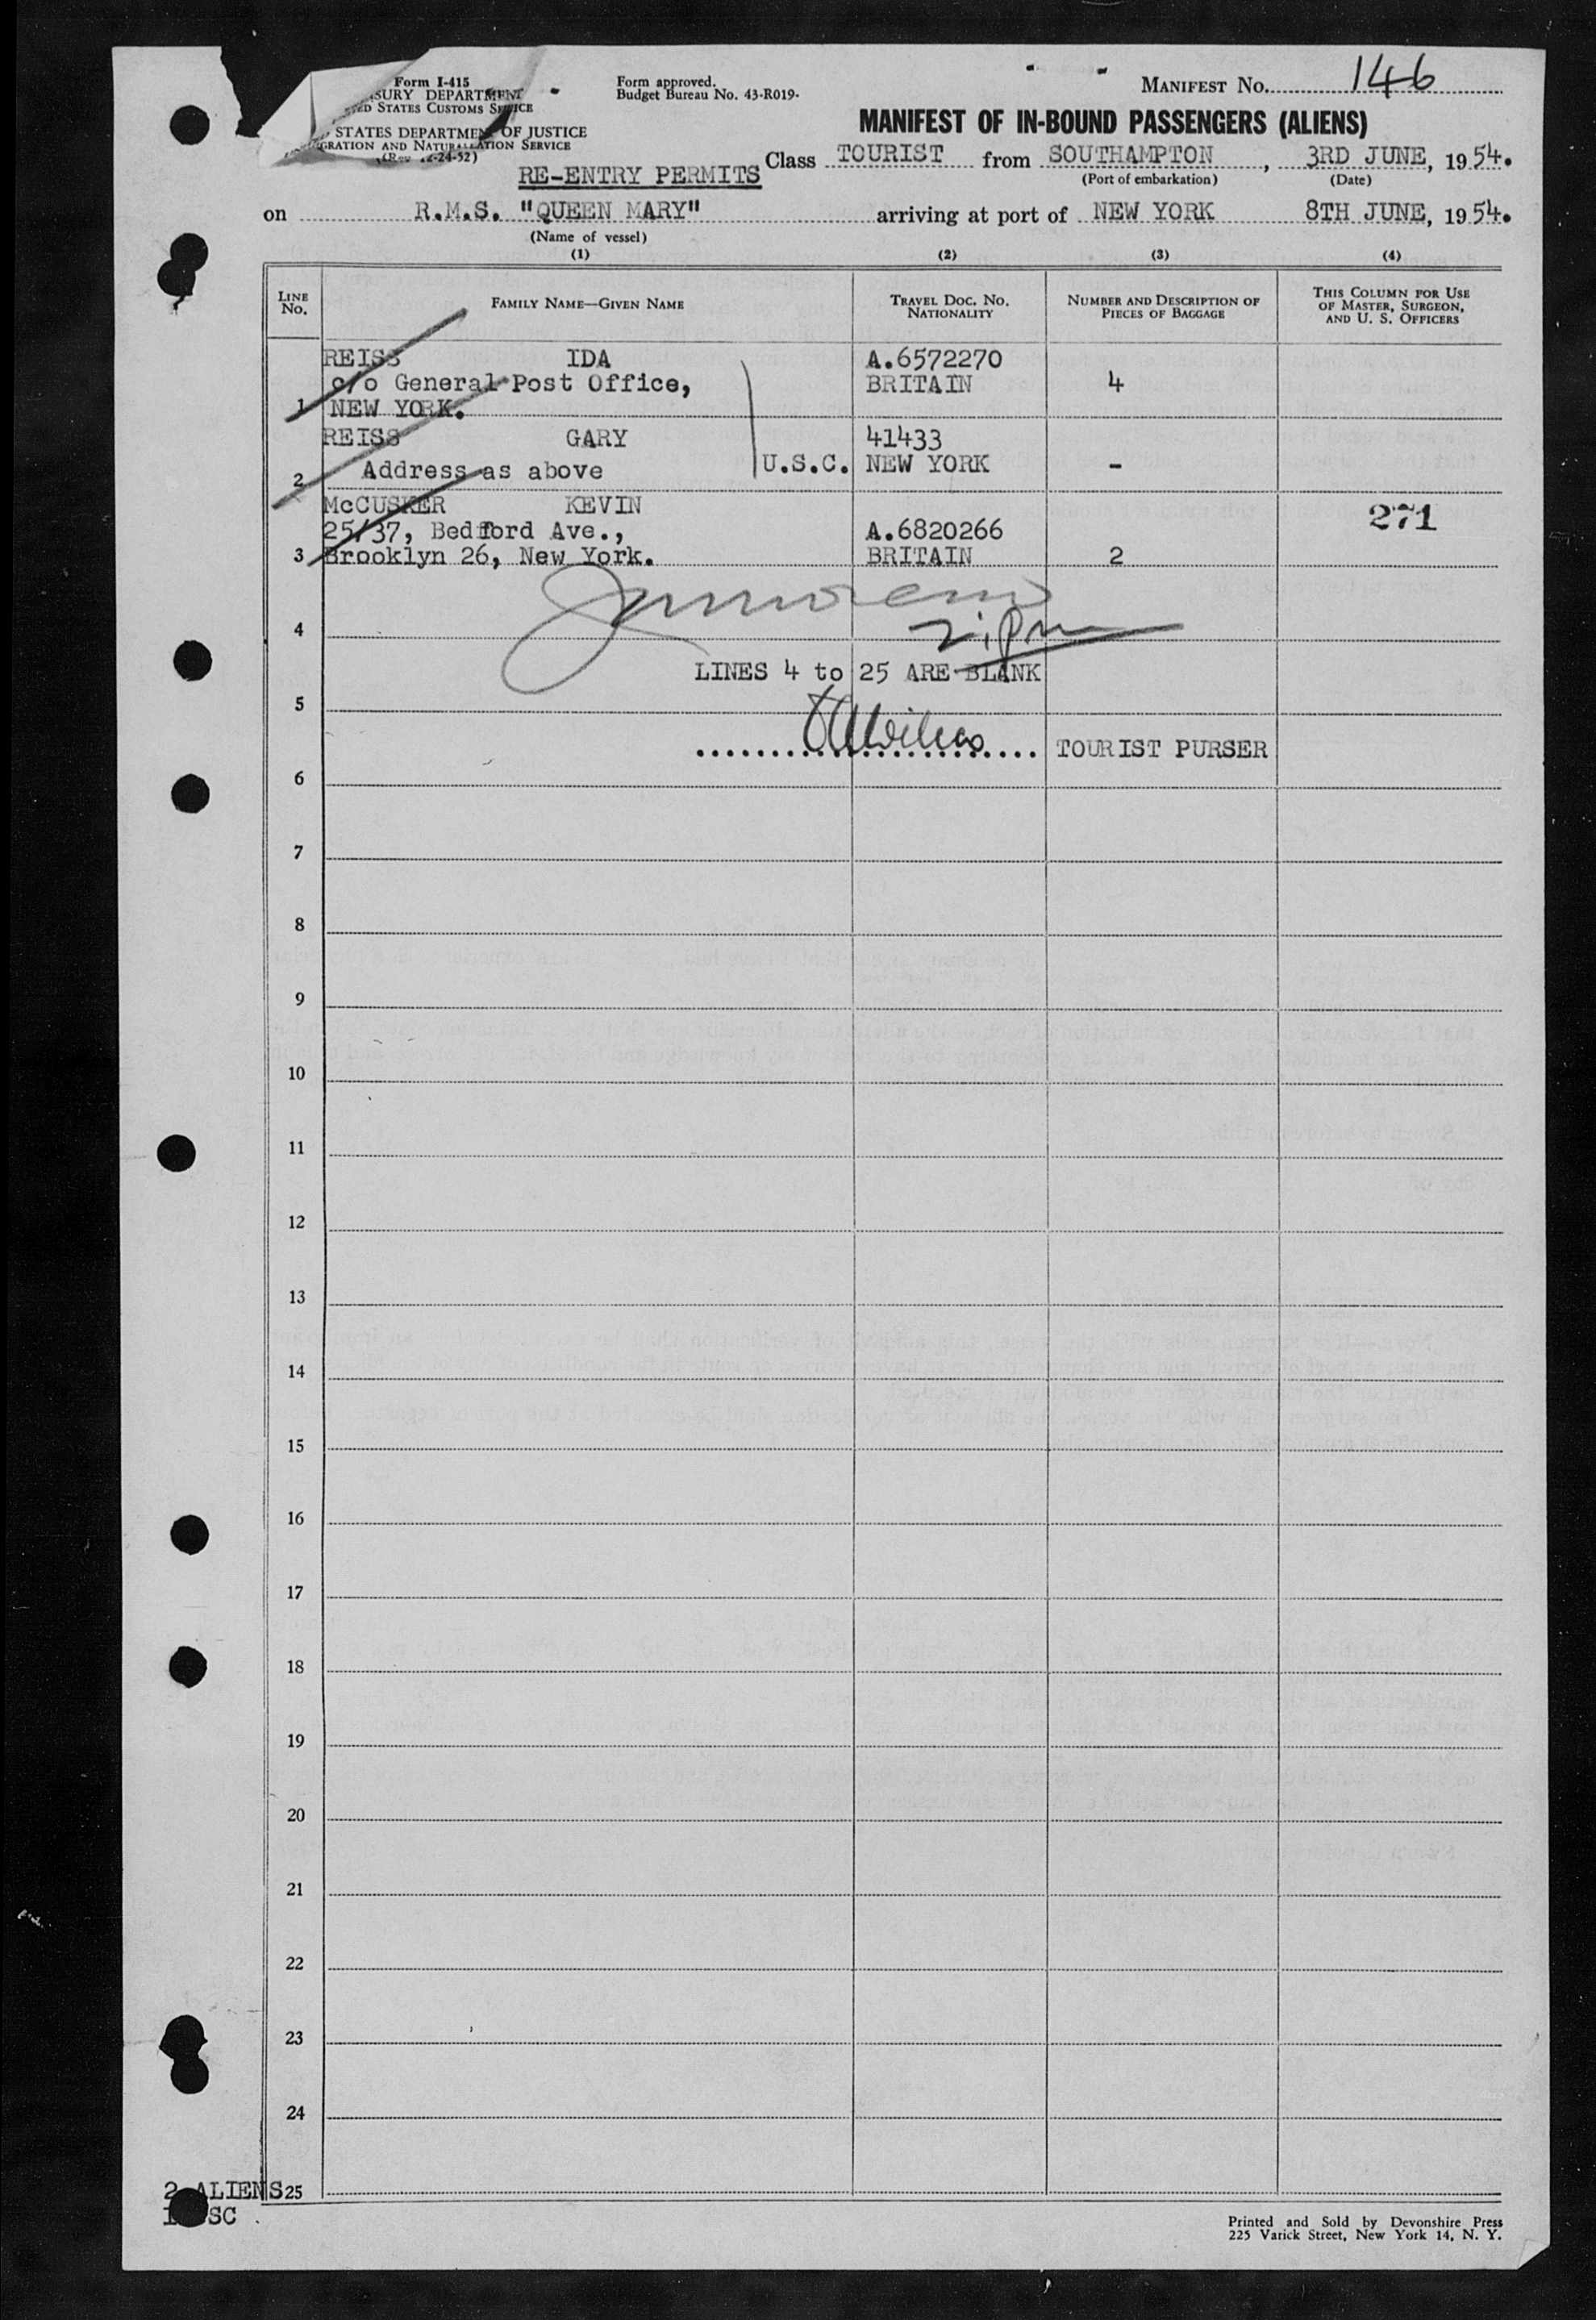 Form I-415
SURY DEPARTMENT
ED STATES CUSTOMS SERVICE
STATES DEPARTMENT OF JUSTICE
GRATION AND NATURALIZATION SERVICE
(Rev. 12-24-52)
Form approved.
Budget Bureau No. 43-R019-
MANIFEST NO. 146
MANIFEST OF IN-BOUND PASSENGERS (ALIENS)
RE-ENTRY PERMITS
Class TOURIST from SOUTHAMPTON, 3RD JUNE, 1954.
(Port of embarkation) (Date)
on R.M.S. "QUEEN MARY" arriving at port of NEW YORK 8TH JUNE, 1954.
(Name of vessel)
(1) (2) (3) (4)
LINE NO.
FAMILY NAME—GIVEN NAME
TRAVEL DOC. NO. NATIONALITY
NUMBER AND DESCRIPTION OF PIECES OF BAGGAGE
THIS COLUMN FOR USE OF MASTER, SURGEON, AND U. S. OFFICERS
REISS IDA A.6572270
c/o General Post Office, BRITAIN 4
1 NEW YORK.
REISS GARY 41433
2 Address as above U.S.C. NEW YORK -
McCUSKER KEVIN 271
25/37, Bedford Ave., A.6820266
3 Brooklyn 26, New York. BRITAIN 2
4
LINES 4 to 25 ARE BLANK
5
TOURIST PURSER
6
7
8
9
10
11
12
13
14
15
16
17
18
19
20
21
22
23
24
2 ALIENS 25
1 SC
Printed and Sold by Devonshire Press
225 Varick Street, New York 14, N. Y.